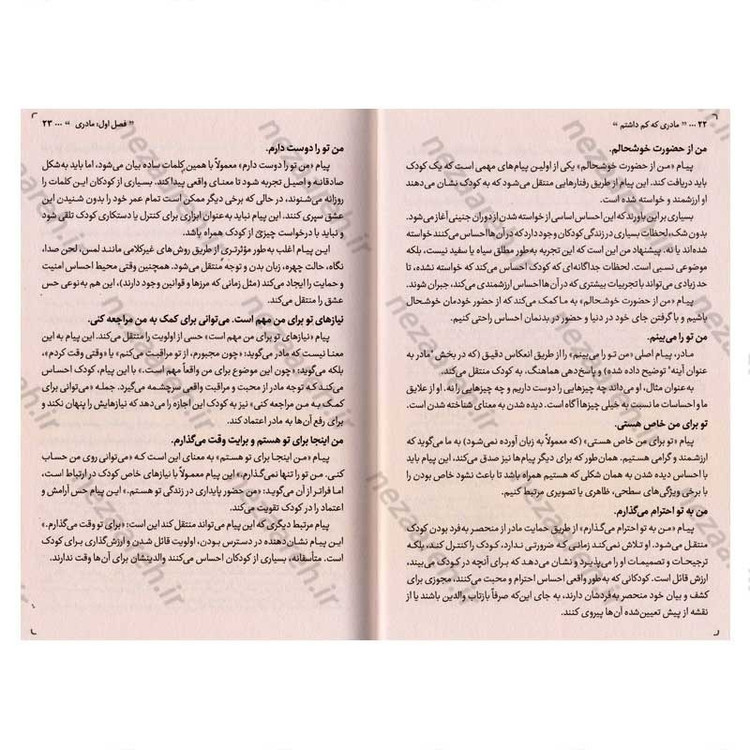 ۲۲ ... " مادری که کم داشتم "
من از حضورت خوشحالم.
پیام «من از حضورت خوشحالم» یکی از اولین پیام‌های مهمی است که یک کودک
باید دریافت کند. این پیام از طریق رفتارهایی منتقل می‌شود که به کودک نشان می‌دهند
او ارزشمند و خواسته شده است.
بسیاری بر این باورند که این احساس اساسی از خواسته شدن از دوران جنینی آغاز می‌شود.
بدون شک، لحظات بسیاری در زندگی کودکان وجود دارد که در آن‌ها احساس می‌کنند خواسته
شده‌اند یا نه. پیشنهاد من این است که این تجربه به‌طور مطلق سیاه یا سفید نیست، بلکه
موضوعی نسبی است. لحظات جداگانه‌ای که کودک احساس می‌کند که خواسته نشده، تا
حد زیادی می‌تواند با تجربیات بیشتری که در آن‌ها احساس ارزشمندی می‌کند، جبران شوند.
پیام «من از حضورت خوشحالم» به ما کمک می‌کند که از حضور خودمان خوشحال
باشیم و با گرفتن جای خود در دنیا و حضور در بدنمان احساس راحتی کنیم.
من تو را می‌بینم.
مادر، پیام اصلی «من تو را می‌بینم» را از طریق انعکاس دقیق (که در بخش "مادر به
عنوان آینه" توضیح داده شده) و پاسخ‌دهی هماهنگ، به کودک منتقل می‌کند.
به‌عنوان مثال، او می‌داند چه چیزهایی را دوست داریم و چه چیزهایی را نه. او از علایق
ما و احساسات ما نسبت به خیلی چیزها آگاه است. دیده شدن به معنای شناخته شدن است.
تو برای من خاص هستی.
پیام «تو برای من خاص هستی» (که معمولاً به زبان آورده نمی‌شود) به ما می‌گوید که
ارزشمند و گرامی هستیم. همان‌طور که برای دیگر پیام‌ها نیز صدق می‌کند، این پیام باید
با احساس دیده شدن به همان شکلی که هستیم همراه باشد تا باعث نشود خاص بودن را
با برخی ویژگی‌های سطحی، ظاهری یا تصویری مرتبط کنیم.
من به تو احترام می‌گذارم.
پیام «من به تو احترام می‌گذارم» از طریق حمایت مادر از منحصر به‌فرد بودن کودک
منتقل می‌شود. او تلاش نمی‌کند زمانی که ضرورتی ندارد، کودک را کنترل کند، بلکه
ترجیحات و تصمیمات او را می‌پذیرد و نشان می‌دهد که برای آنچه در کودک می‌بیند،
ارزش قائل است. کودکانی که به‌طور واقعی احساس احترام و محبت می‌کنند، مجوزی برای
کشف و بیان خود منحصر به‌فردشان دارند، به جای این‌که صرفاً بازتاب والدین باشند یا از
نقشه از پیش تعیین‌شده آن‌ها پیروی کنند.
" فصل اول: مادری " ... ۲۳
من تو را دوست دارم.
پیام «من تو را دوست دارم» معمولاً با همین کلمات ساده بیان می‌شود، اما باید به‌شکل
صادقانه و اصیل تجربه شود تا معنای واقعی پیدا کند. بسیاری از کودکان این کلمات را
روزانه می‌شنوند، در حالی که برخی دیگر ممکن است تمام عمر خود را بدون شنیدن این
عشق سپری کنند. این پیام نباید به‌عنوان ابزاری برای کنترل یا دستکاری کودک تلقی شود
و نباید با درخواست چیزی از کودک همراه باشد.
این پیام اغلب به‌طور مؤثرتری از طریق روش‌های غیرکلامی مانند لمس، لحن صدا،
نگاه، حالت چهره، زبان بدن و توجه منتقل می‌شود. همچنین وقتی محیط احساس امنیت
و حمایت را ایجاد می‌کند (مثل زمانی که مرزها و قوانین وجود دارند)، این هم به‌نوعی حس
عشق را منتقل می‌کند.
نیازهای تو برای من مهم است. می‌توانی برای کمک به من مراجعه کنی.
پیام «نیازهای تو برای من مهم است» حسی از اولویت را منتقل می‌کند. این پیام به این
معنا نیست که مادر می‌گوید: «چون مجبورم، از تو مراقبت می‌کنم» یا «وقتی وقت کردم»،
بلکه می‌گوید: «چون این موضوع برای من واقعاً مهم است.» با این پیام، کودک احساس
می‌کند که توجه مادر از محبت و مراقبت واقعی سرچشمه می‌گیرد. جمله «می‌توانی برای
کمک به من مراجعه کنی» نیز به کودک این اجازه را می‌دهد که نیازهایش را پنهان نکند و
برای رفع آن‌ها به مادر اعتماد کند.
من اینجا برای تو هستم و برایت وقت می‌گذارم.
پیام «من اینجا برای تو هستم» به معنای این است که «می‌توانی روی من حساب
کنی. من تو را تنها نمی‌گذارم.» این پیام معمولاً با نیازهای خاص کودک در ارتباط است،
اما فراتر از آن می‌گوید: «من حضور پایداری در زندگی تو هستم.» این پیام حس آرامش و
اعتماد را در کودک تقویت می‌کند.
پیام مرتبط دیگری که این پیام می‌تواند منتقل کند این است: «برای تو وقت می‌گذارم.»
این پیام نشان‌دهنده در دسترس بودن، اولویت قائل شدن و ارزش‌گذاری برای کودک
است. متأسفانه، بسیاری از کودکان احساس می‌کنند والدینشان برای آن‌ها وقت ندارند.
nezaareh.ir